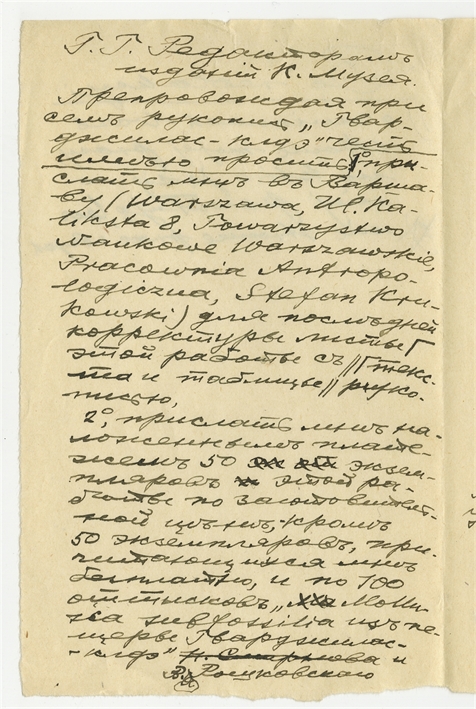 Г. Г. Редакторамъ
изданій К. Музея.
Препровождая при
семъ рукопись „Гвар-
джилас-клдэ" честь
имѣю просить 1°, при-
слать мнѣ въ Варша-
ву (Warszawa, Ul. Ka-
liksta 8, Towarzystwo
Naukowe Warszawskie,
Pracownia Antropo-
logiczna, Stefan Kru-
kowski) для послѣдней
корректуры листы
этой работы съ
та и таблицы руко-
писью,
2°, прислать мнѣ на-
ложеннымъ плате-
жемъ 50 экзем-
пляровъ этой ра-
боты по заготовитель-
ной цѣнѣ, кромѣ
50 экземпляровъ, при-
читающихся мнѣ
бесплатно, и по 100
оттисковъ „Mollu-
ska subfossilia изъ пе-
щеры Гварджилас-
-клдэ" и
Рошковскаго